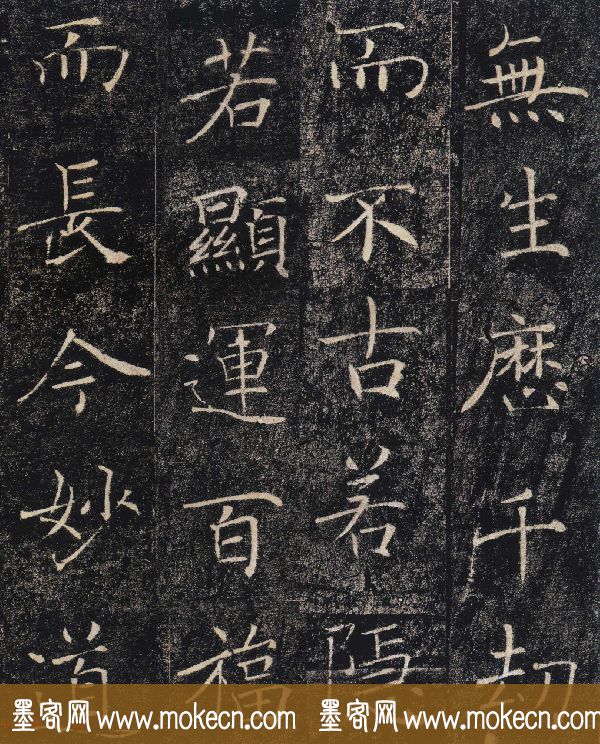 無生歷千劫
而不古若隱
若顯運百福
而長今妙道
墨客网 www.mokecn.com 墨客网 www.mokecn.com